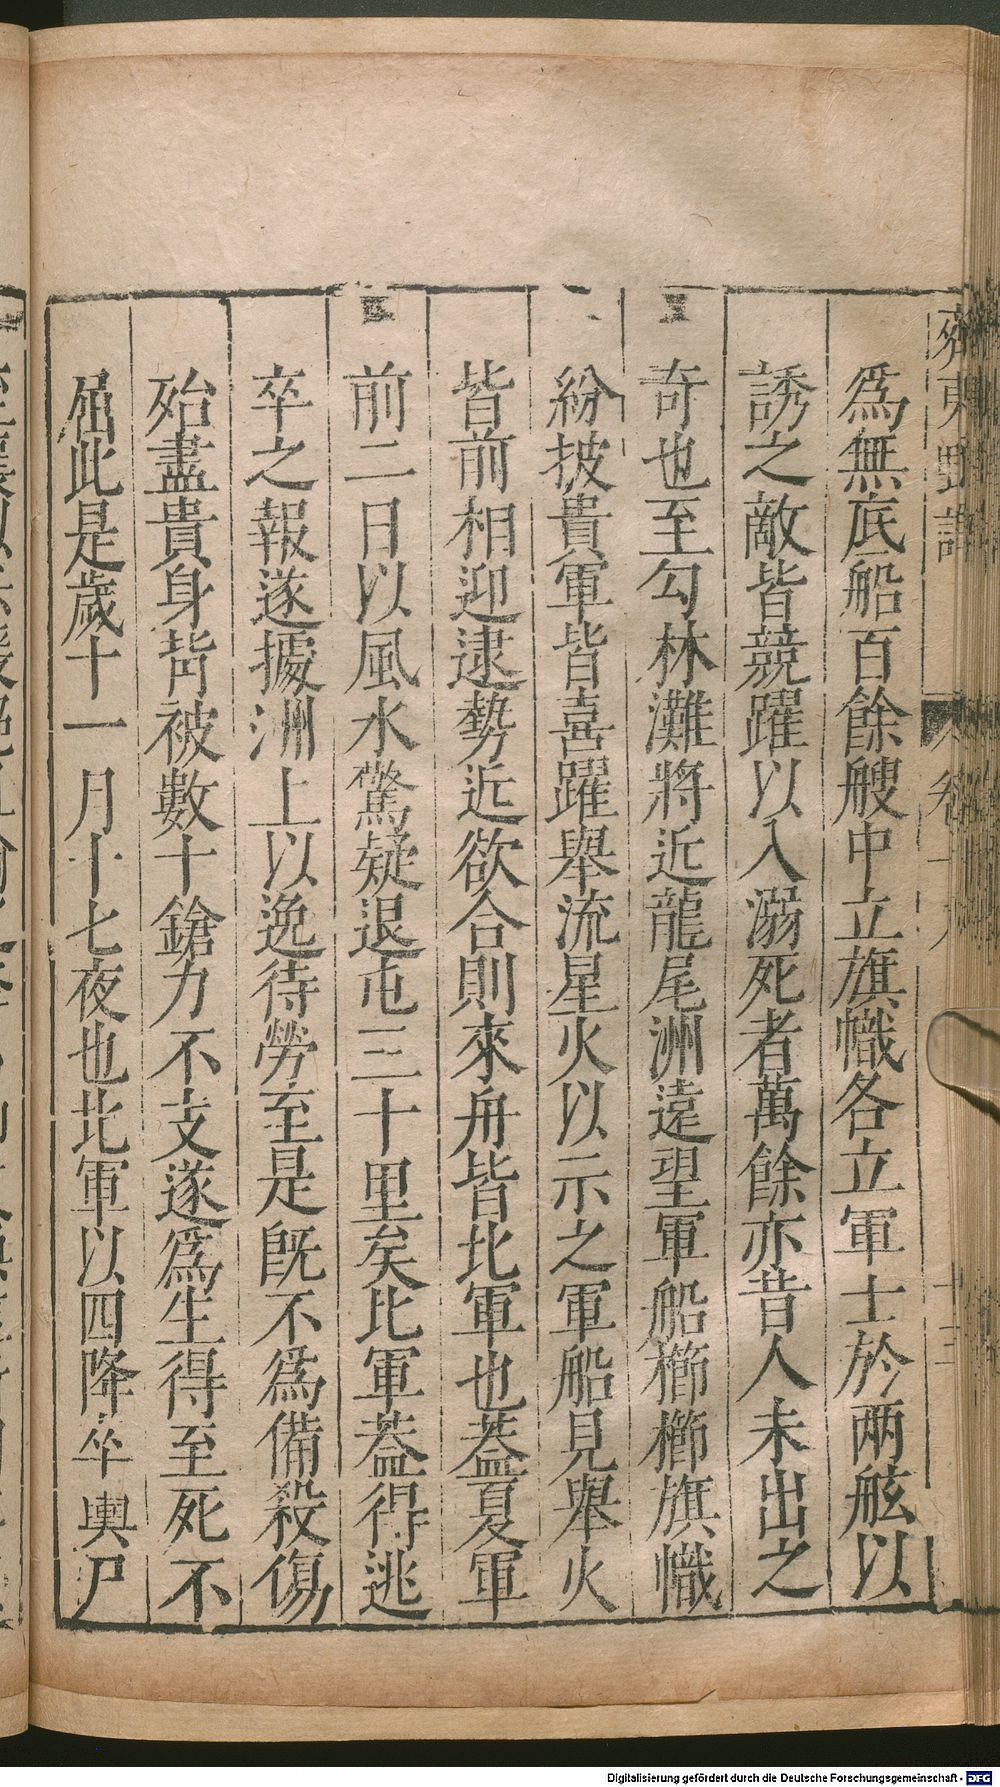 齊東野語
卷十八
十三
爲無底船百餘艘中立旗幟各立軍士於兩舷以
誘之敵皆競躍以入溺死者萬餘亦昔人未出之
奇也至勾林灘將近龍尾洲遠望軍船櫛櫛旗幟
紛披貴軍皆喜躍舉流星火以示之軍船見舉火
皆前相迎逮勢近欲合則來舟皆北軍也葢夏軍
前二日以風水驚疑退屯三十里矣北軍葢得逃
卒之報遂據洲上以逸待勞至是旣不爲備殺傷
殆盡貴身背被數十鎗力不支遂爲生得至死不
屈此是歲十一月十七夜也北軍以四降卒輿尸
Digitalisierung gefördert durch die Deutsche Forschungsgemeinschaft - DFG